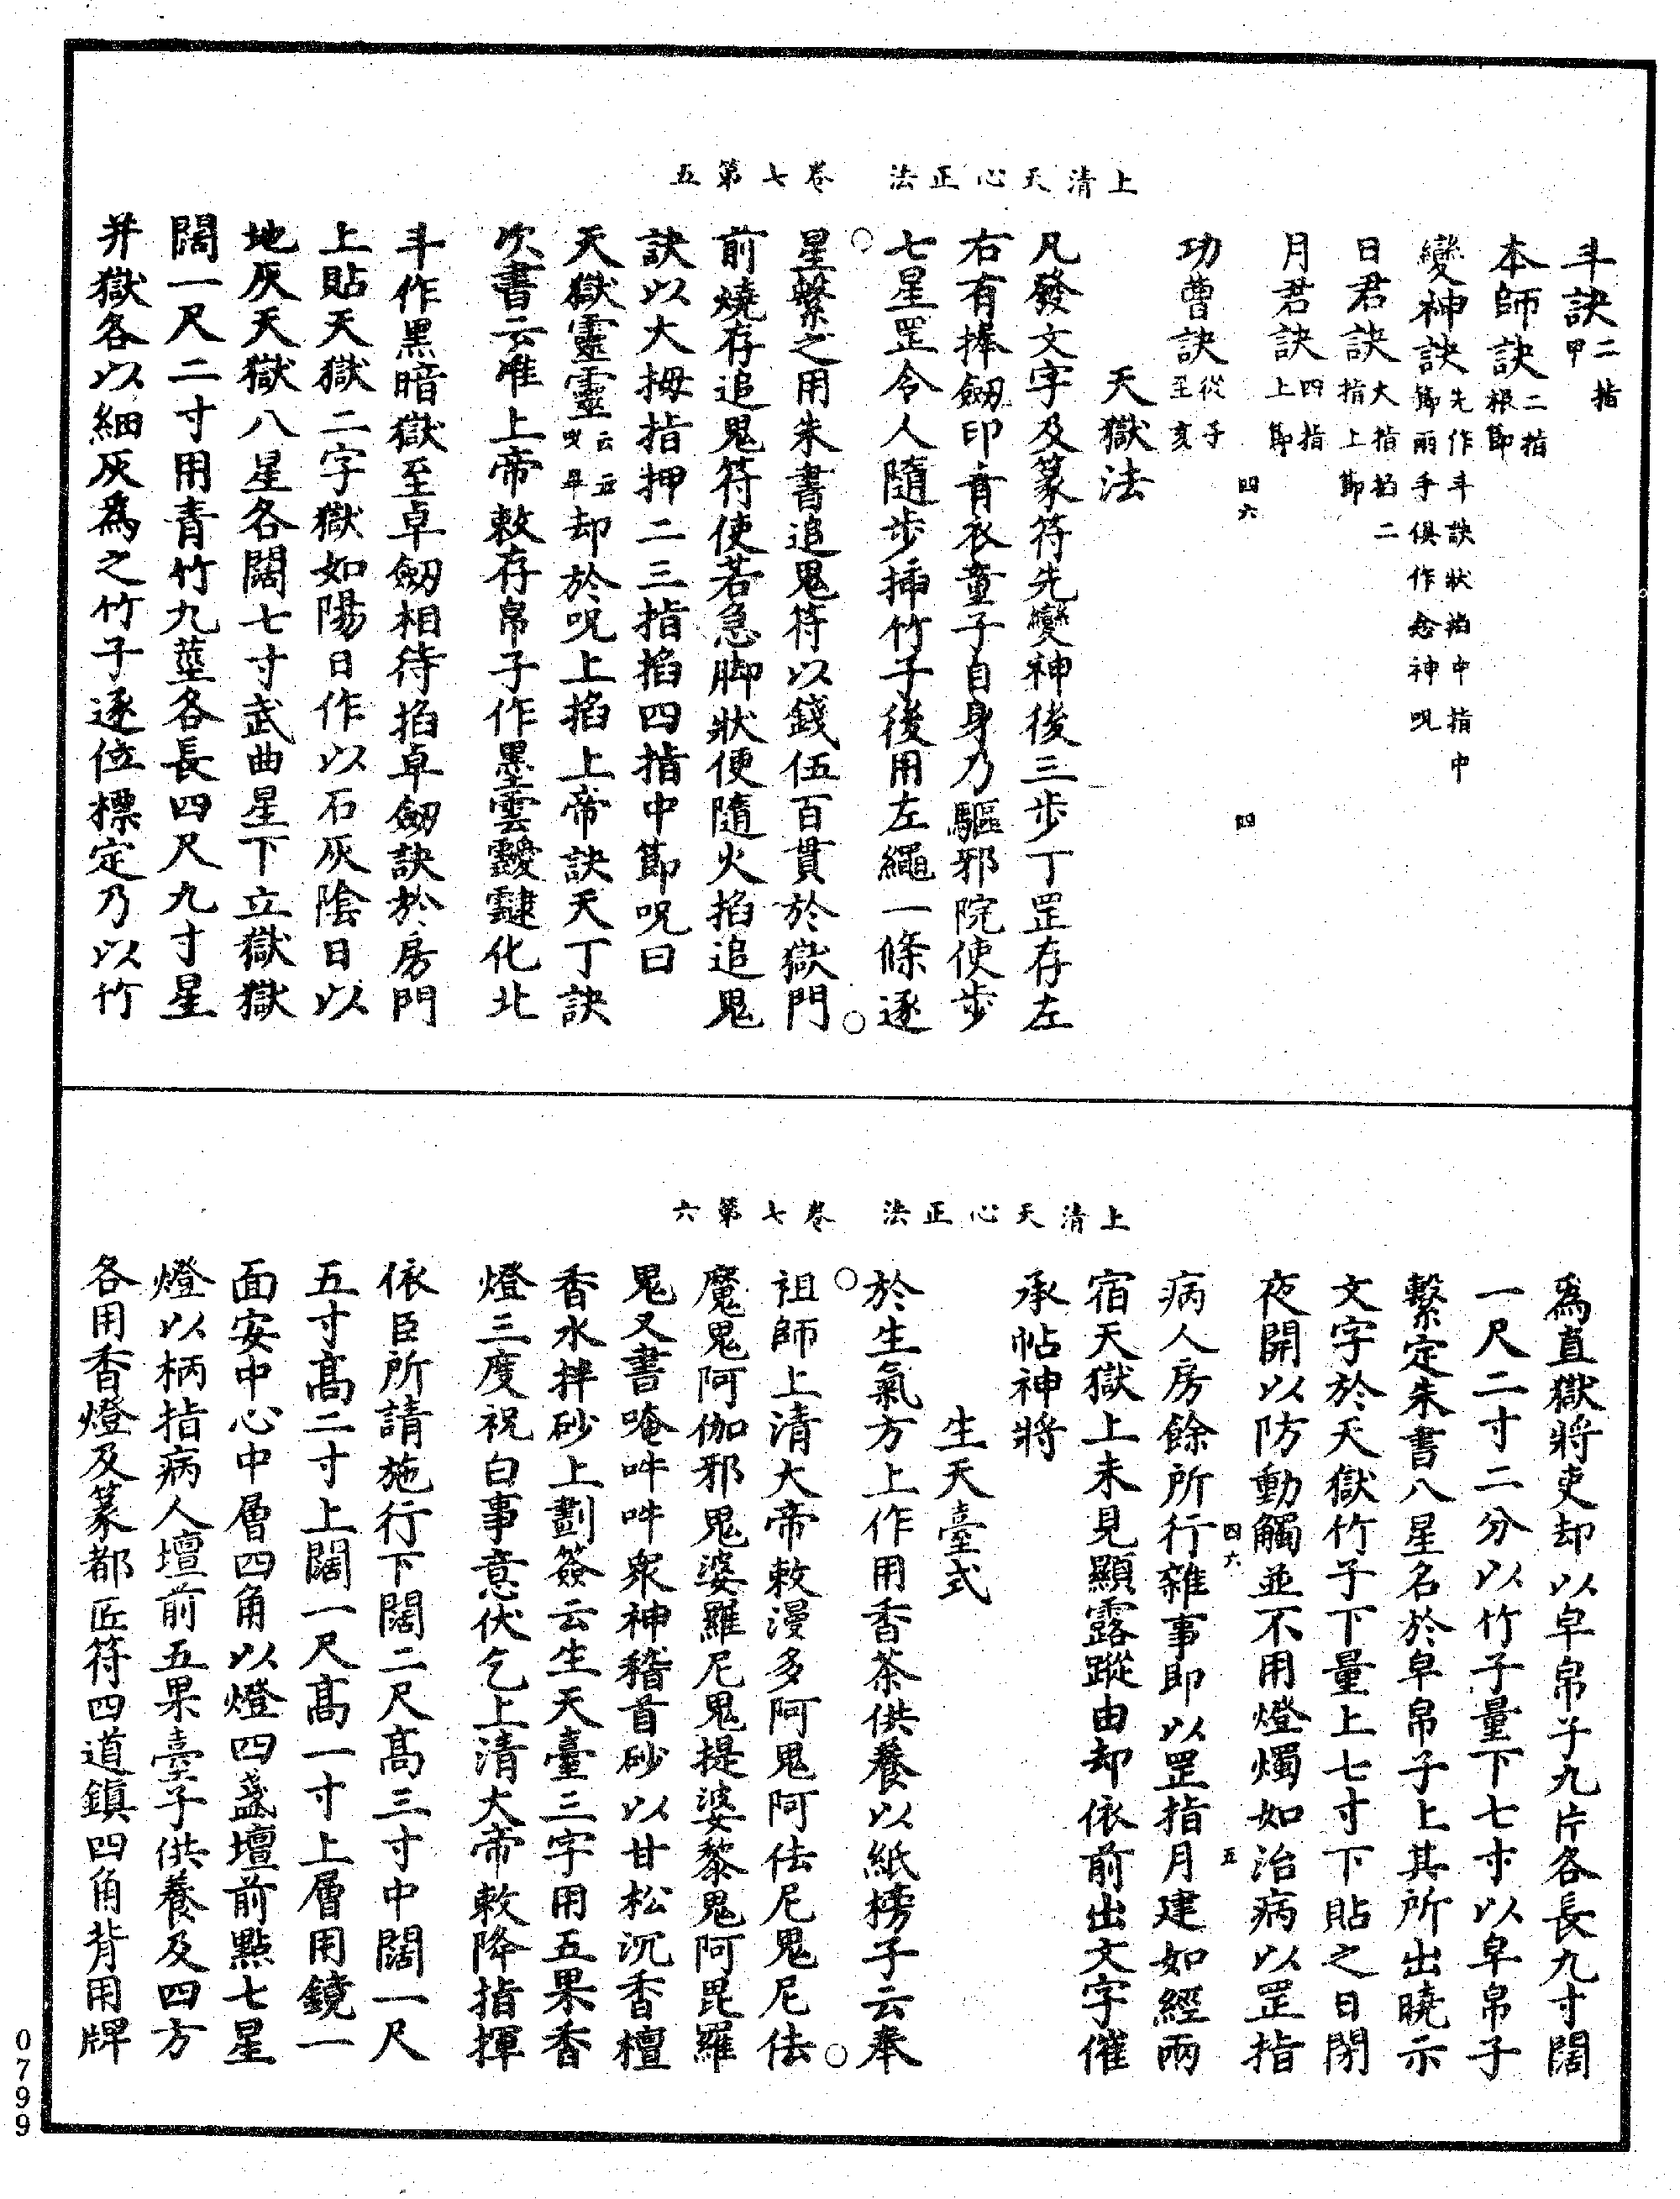 上清天心正法　卷七第五
斗訣二指甲
本師訣二指根節
變神訣先作斗訣狀掐中指中節兩手俱作念神呪
日君訣大指掐二指上節
月君訣四指上節
四六　四
功曹訣從子至亥
天獄法
凡發文字及篆符先變神後三步丁罡存左
右有捧劒印青衣童子自身乃驅邪院使步
七星罡令人隨步揷竹子後用左繩一條逐
星繫之用朱書追鬼符以錢伍百貫於獄門
前燒存追鬼符使若急脚狀便隨火掐追鬼
訣以大拇指押二三指掐四指中節呪曰
天獄靈靈云云呪畢却於呪上掐上帝訣天丁訣
吹書云准上帝敕存帛子作黑雲靉靆化北
斗作黑暗獄至卓劒相待掐卓劒訣於房門
上貼天獄二字獄如陽日作以石灰陰日以
地灰天獄八星各闊七寸武曲星下立獄獄
闊一尺二寸用青竹九莖各長四尺九寸星
并獄各以細灰爲之竹子逐位標定乃以竹
上清天心正法　卷七第六
爲直獄將吏却以皁帛子九片各長九寸闊
一尺二寸二分以竹子量下七寸以皁帛子
繫定朱書八星名於皁帛子上其所出曉示
文字於天獄竹子下量上七寸下貼之日閉
夜開以防動觸並不用燈燭如治病以罡指
四六　五
病人房餘所行雜事即以罡指月建如經兩
宿天獄上未見顯露蹤由却依前出文字催
承帖神將
生天臺式
於生氣方上作用香茶供養以紙榜子云奉
祖師上清大帝敕漫多阿鬼阿佉尼鬼尼佉
魔鬼阿伽邪鬼婆羅尼鬼提婆黎鬼阿毘羅
鬼又書唵吽吽衆神稽首砂以甘松沉香檀
香水拌砂上劃簽云生天臺三字用五果香
燈三度祝白事意伏乞上清大帝敕降指揮
依臣所請施行下闊二尺髙三寸中闊一尺
五寸髙二寸上闊一尺髙一寸上層用鏡一
面安中心中層四角以燈四盞壇前點七星
燈以柄指病人壇前五果臺子供養及四方
各用香燈及篆都匠符四道鎮四角背用牌
0799